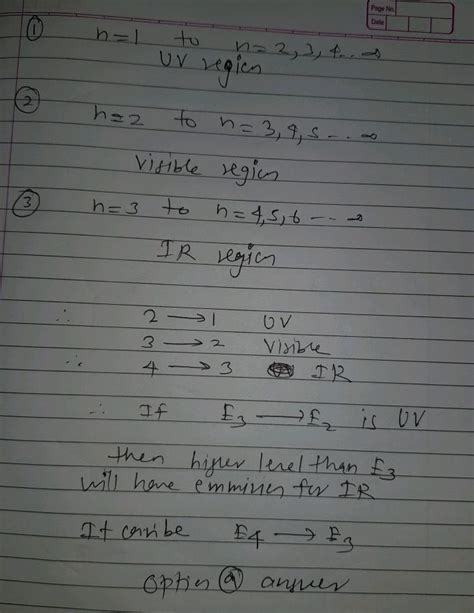 Page No.
Date
① n=1 to n=2,3,4..∞
UV region
② n=2 to n=3,4,5--.∞
Visible region
③ n=3 to n=4,5,6---∞
IR region
∴ 2 → 1 UV
3 → 2 Visible
∴ 4 → 3 IR
∴ If E3 → E2 is UV
then higher level than E3
will have emmision for IR
It can be E4 → E3
option ⓐ answer